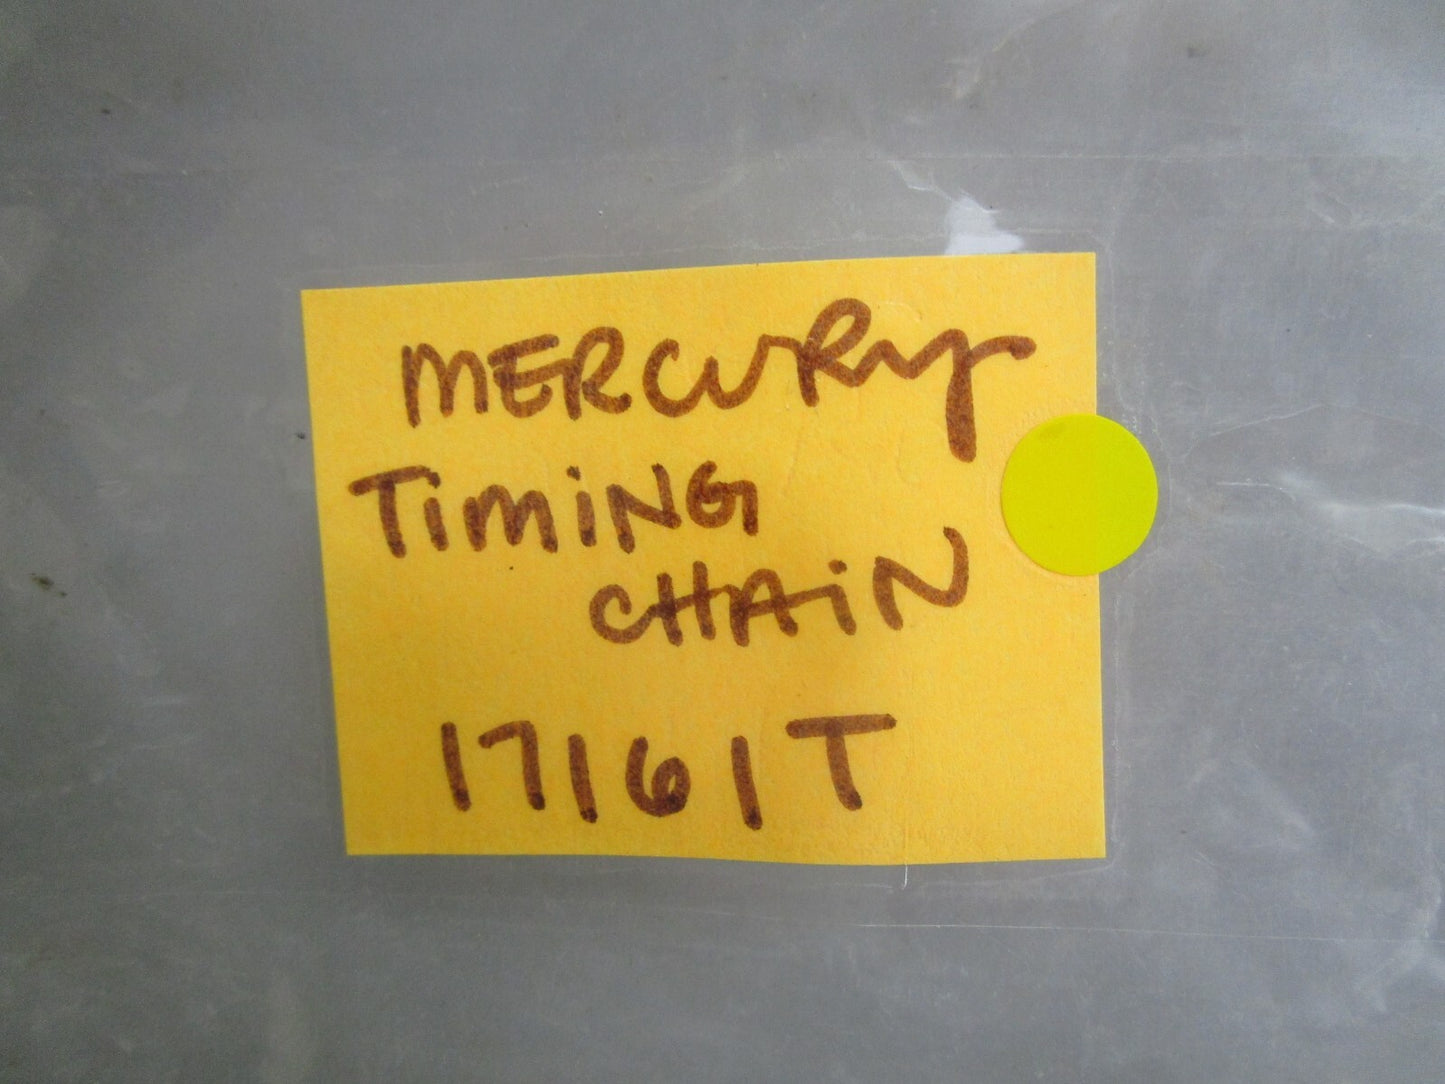 MERCURY
TiMiNG
CHAiN
17161T